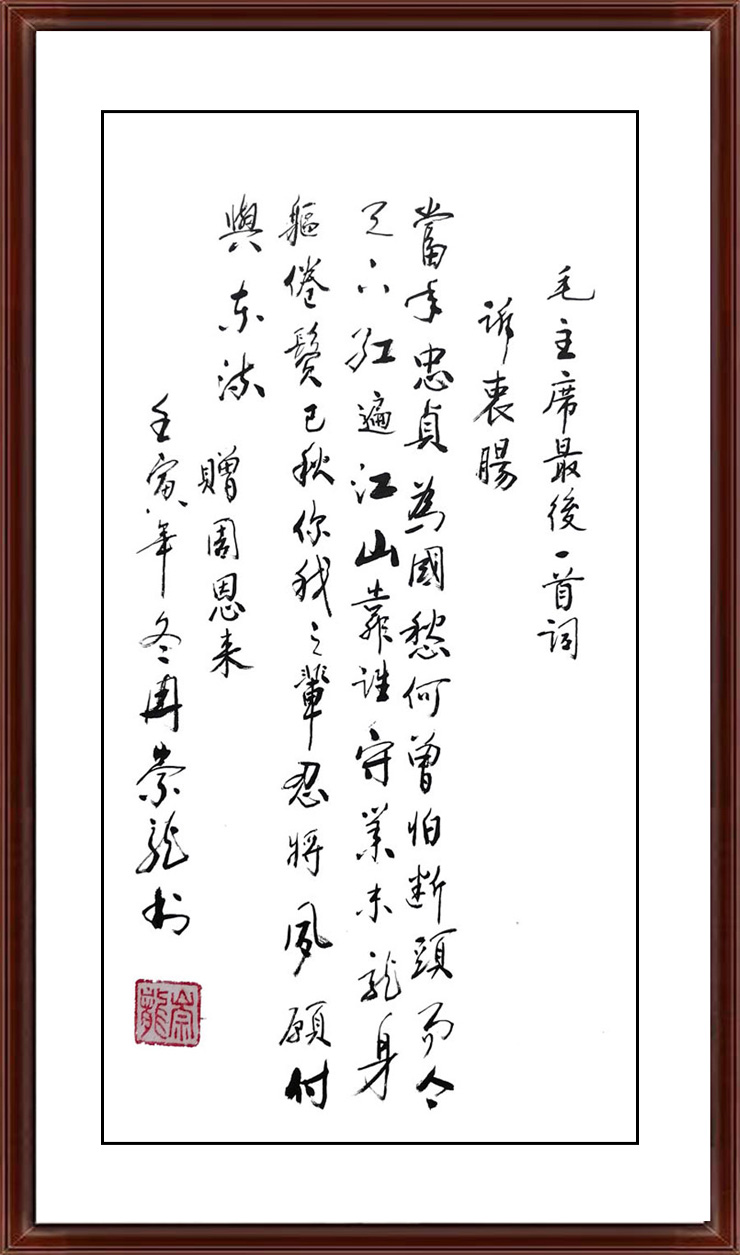 毛主席最後一首词
诉衷腸
當年忠貞為國愁何曾怕断頭而今
天下红遍江山靠誰守業未就身
軀倦鬓已秋你我之輩忍將夙願付
與东流
贈周恩来
壬寅年冬崇龍书
崇龍